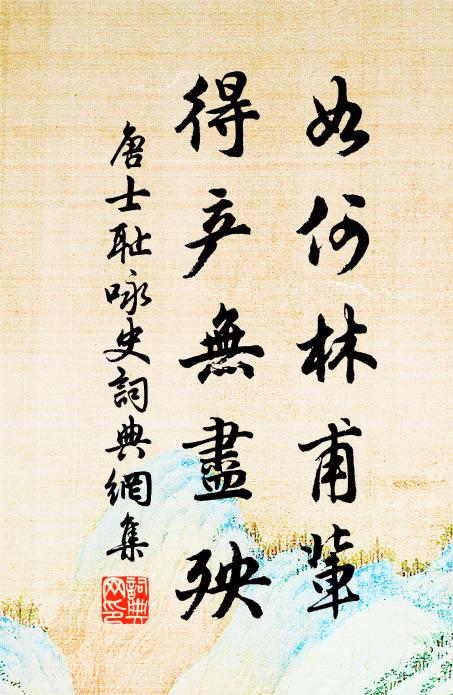 如何林甫輩
得卒無盡殃
唐士耻咏史詞典網集
詞典
网印